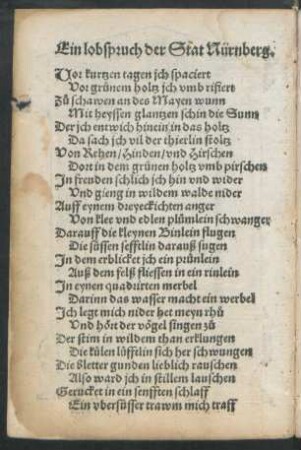 Ein lobspruch der Stat Nürnberg.
Vor kurtzen tagen jch spaciert
Vor grünem holtz jch vmb refiert
Zů schawen an des Mayen wunn
Mit heyssen glantzen schin die Sunn
Der jch entwich hinein in das holtz
Da sach jch vil der thierlin stoltz
Von Rehen/Hinden/vnd Hirschen
Dort in dem grünen holtz vmb pirschen
In freuden schlich jch hin vnd wider
Vnd gieng in wildem walde nider
Auff eynem dreyeckichten anger
Von klee vnd edlen plümlein schwanger
Darauff die kleynen Binlein flugen
Die süssen sefftlin darauß sugen
In dem erblicket jch ein prünlein
Auß dem felß fliessen in ein rinlein
In eynen quadurten merbel
Darinn das wasser macht ein werbel
Ich legt mich nider het meyn rhů
Vnd hört der vögel singen zů
Der stim in wildem than erklungen
Die külen lüfftlin sich her schwungen
Die Bletter gunden lieblich rauschen
Also ward jch in stillem lauschen
Gerucket in ein senfften schlaff
Ein vbersüsser trawm mich traff